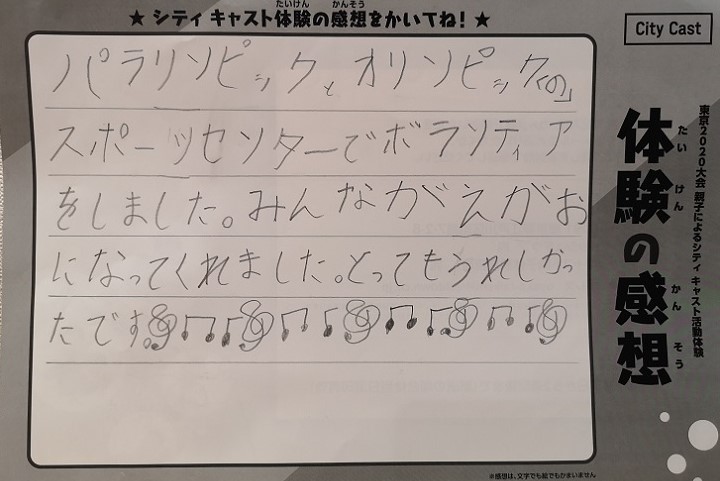 ★ シティ キャスト体験の感想をかいてね！ ★
たいけん かんそう
City Cast
パラリンピックとオリンピック(の)
スポーツセンターでボランティア
をしました。みんながえがお
になってくれました。とってもうれしかっ
たです。
東京2020大会 親子によるシティ キャスト活動体験
体験の感想
たい けん かん そう
※感想は、文字でも絵でもかまいません